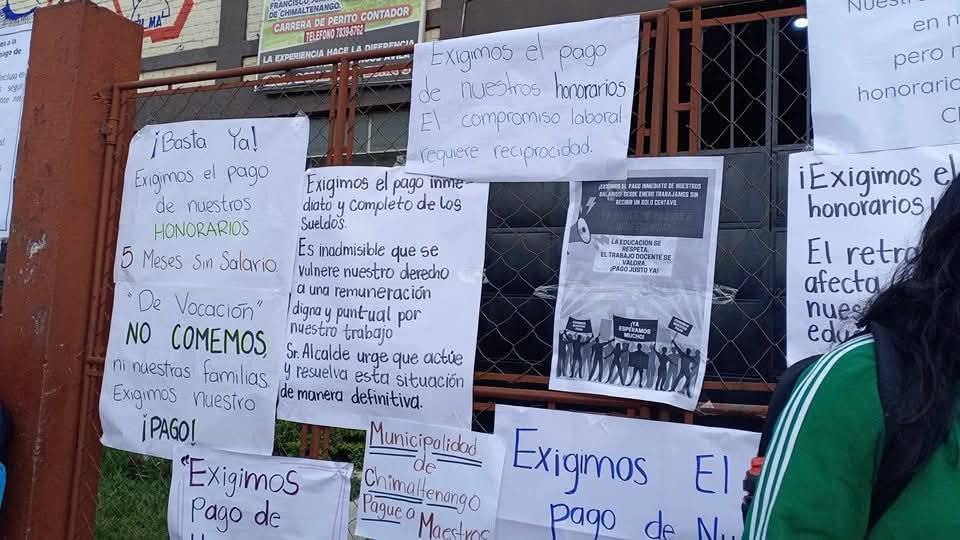 FRANCISCO,
DE CHIMALTENANGO.
CARRERA DE PERITO CONTADOR
TELEFONO 7839-6762
LA EXPERIENCIA HACE LA DIFERENCIA
¡Basta Ya!
Exigimos el pago
de nuestros
HONORARIOS
5 Meses Sin Salario
"De Vocación"
NO COMEMOS
ni nuestras familias.
Exigimos nuestro
¡PAGO!
Exigimos el pago inme-
diato y completo de los
sueldos.
Es inadmisible que se
vulnere nuestro derecho
a una remuneración
digna y puntual por
nuestro trabajo
Sr. Alcalde urge que actúe
y resuelva esta situación
de manera definitiva.
Exigimos el pago
de nuestros honorarios
El compromiso laboral
requiere reciprocidad.
¡EXIGIMOS EL PAGO INMEDIATO DE NUESTROS
SALARIOS! DESDE ENERO TRABAJAMOS SIN
RECIBIR UN SOLO CENTAVO.
LA EDUCACIÓN SE
RESPETA.
EL TRABAJO DOCENTE SE
VALORA.
¡PAGO JUSTO YA!
¡YA
ESPERAMOS
MUCHO!
Nuestro
en m
pero n
honorario
¡Exigimos el
honorarios
El retr
afecta
nues
edu
"Exigimos
Pago de
Municipalidad
de
Chimaltenango
Pague a
Maestros
Exigimos El
pago de Nu